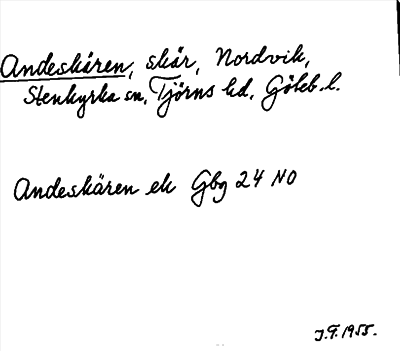 Andeskären, skär, Nordvik,
Stenkyrka sn, Tjörns hd, Göteb. l.
Andeskären ek Gbg 24 NO
J.F. 1955.